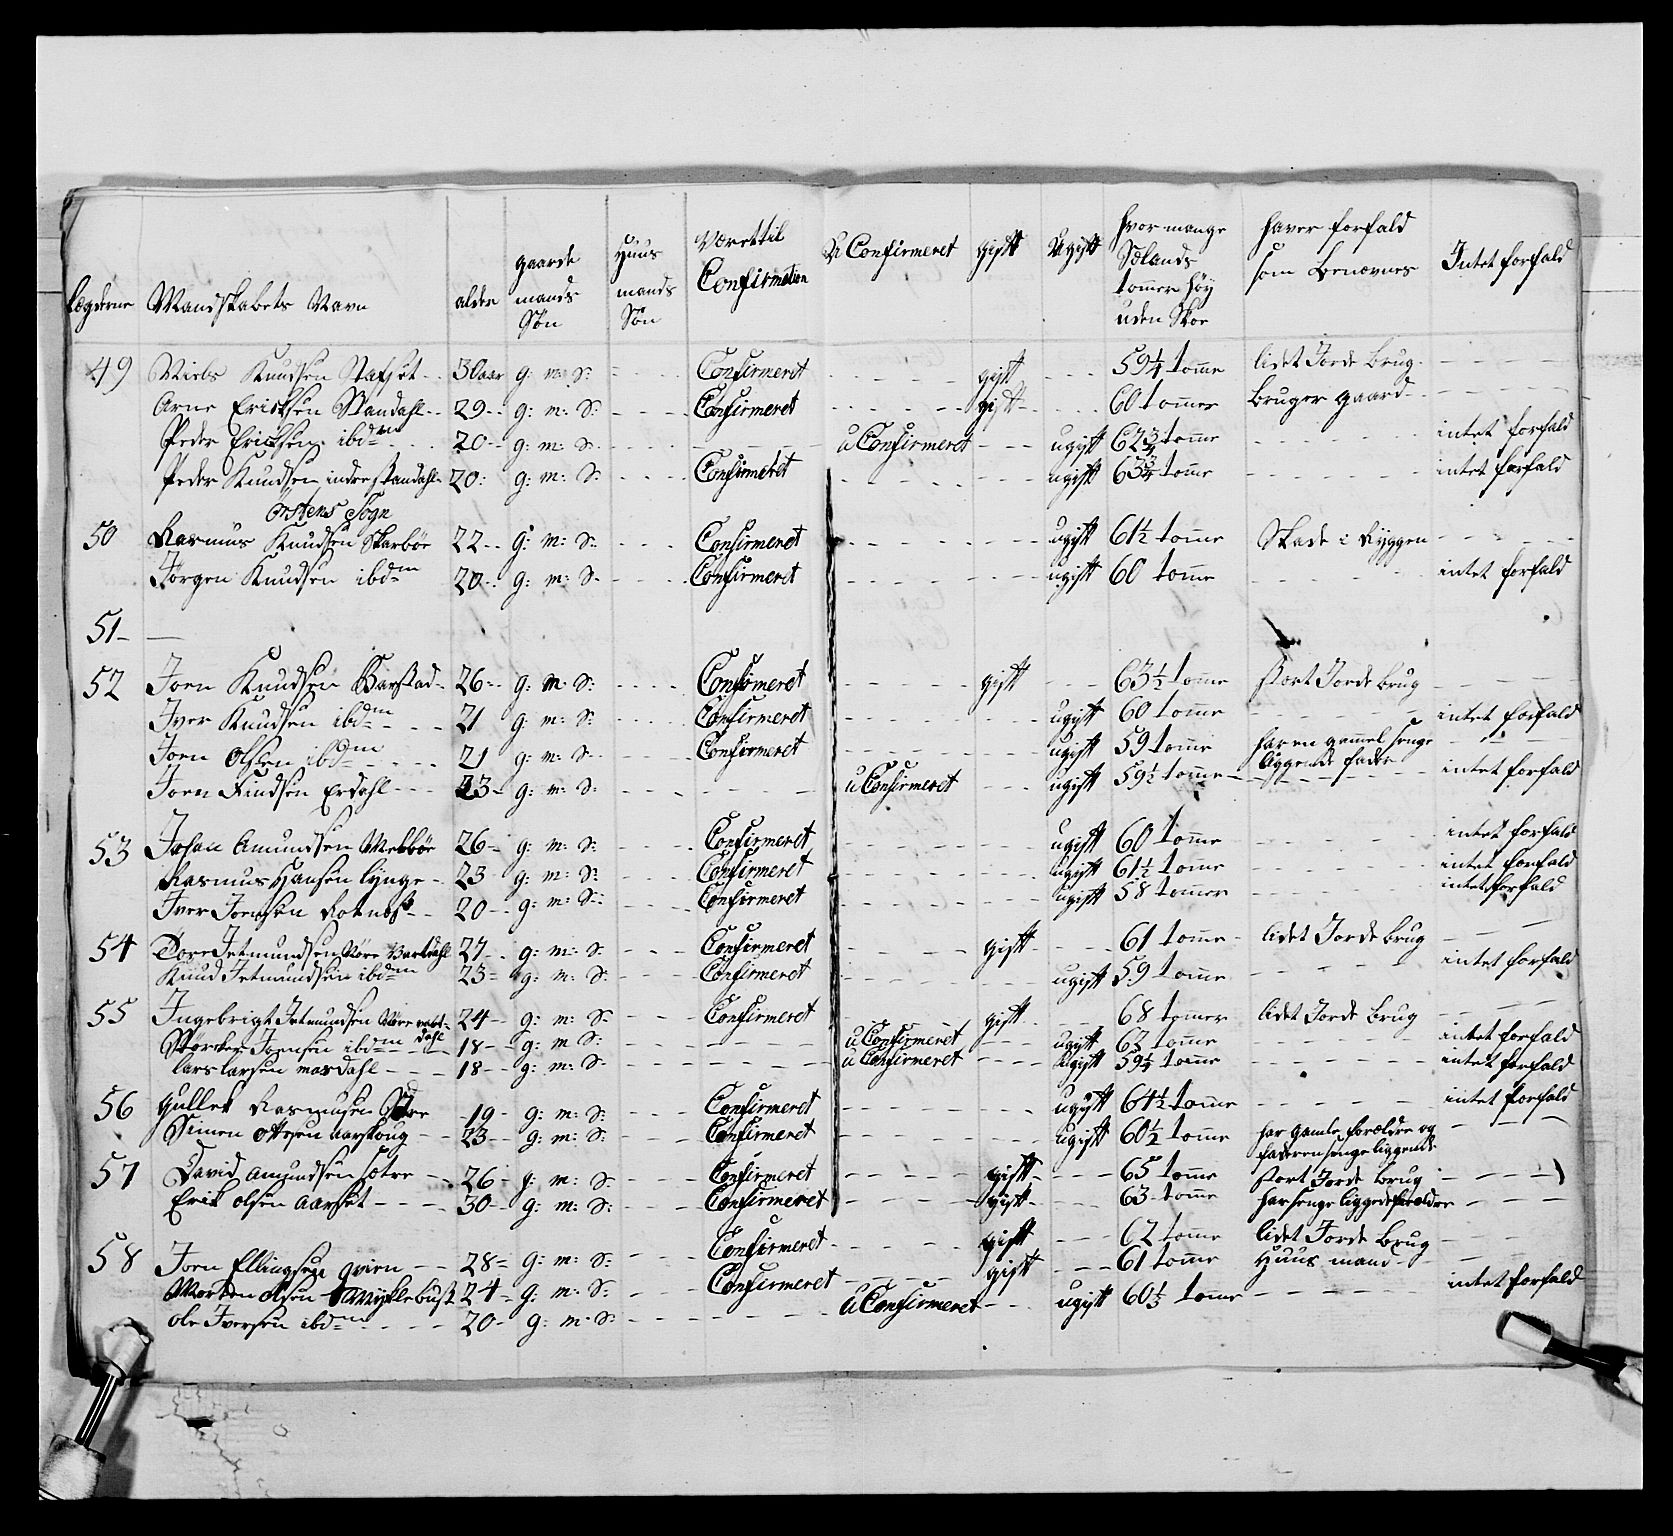 Lægderne Mandskabets Navn alder gaardemands Søn Huusmands Søn Værettil Confirmation U Confirmeret gift Ugift hvor mange Sælands tomer høy uden Skoe haver forfald som benævnes Intet forfald
49 Niels Knudsen Stafset 30 aar g: m: S: Confirmeret gift 59 1/4 tomme lidet Jorde brug
Arne Ericksen Standahl 29 g: m: S: Confirmeret gift 60 tommer bruger gaard
Peder Ericksen ibdm 20 g: m: S: u Confirmeret ugift 62 3/4 tomme intet forfald
Peder Knudsen indrestandahl 20 g: m: S: Confirmeret ugift 63 3/4 tomme intet forfald
Ørstens Sogn
50 Rasmus Knudsen Skarbøe 22 g: m: S: Confirmeret ugift 61 1/2 tomme Skade i Ryggen
Jørgen Knudsen ibdm 20 g: m: S: Confirmeret ugift 60 tomme intet forfald
51 —
52 Joen Knudsen Barstad 26 g: m: S: Confirmeret gift 63 1/2 tomme stort Jorde brug
Iver Knudsen ibdm 21 g: m: S: Confirmeret ugift 60 tomme intet forfald
Joen Olsen ibdm 21 g: m: S: Confirmeret ugift 59 tomme har en gammel senge liggende fader
Joen Knudsen Erdahl 23 g: m: S: u Confirmeret ugift 59 1/2 tomme intet forfald
53 Johan Amundsen Melbøe 26 g: m: S: Confirmeret ugift 60 tomme intet forfald
Rasmus Hansen Lynge 23 g: m: S: Confirmeret ugift 61 1/2 tomme intet forfald
Iver Joensen 20 g: m: S: Confirmeret ugift 58 tommer intet forfald
54 Tore Jetmundsen Nøre Vartdahl 27 g: m: S: Confirmeret gift 61 tomme lidet Jorde brug
Knud Jetmundsen ibdm 23 g: m: S: Confirmeret ugift 59 tomme intet forfald
55 Ingebrigt Jetmundsen Nøre vartdahl 24 g: m: S: Confirmeret gift 68 tomer lidet Jorde Brug
Joensen ibdm 18 g: m: S: u Confirmeret ugift 62 tomme intet forfald
Lars Larsen masdahl 18 g: m: S: u Confirmeret ugift 59 1/4 tomme intet forfald
56 gullek Rasmusen Sætre 19 g: m: S: Confirmeret ugift 64 1/2 tomme intet forfald
Simen Ottesen aarskoug 23 g: m: S: Confirmeret ugift 60 1/2 tomme har gamle forældre og faderen senge liggende
57 David Amundsen Sætre 26 g: m: S: Confirmeret gift 65 tomme stort Jorde brug
Erik Olsen Aarset 30 g: m: S: Confirmeret gift 63 tomme har senge liggede forældre
58 Joen Ellingsen qvien 28 g: m: S: Confirmeret gift 62 tomme lidet Jorde brug
Morten Olsen Myklebust 24 g: m: S: Confirmeret gift 61 tomme Huus mand
Ole Iversen ibdm 20 g: m: S: U Confirmeret ugift 60 1/3 tomme intet forfald